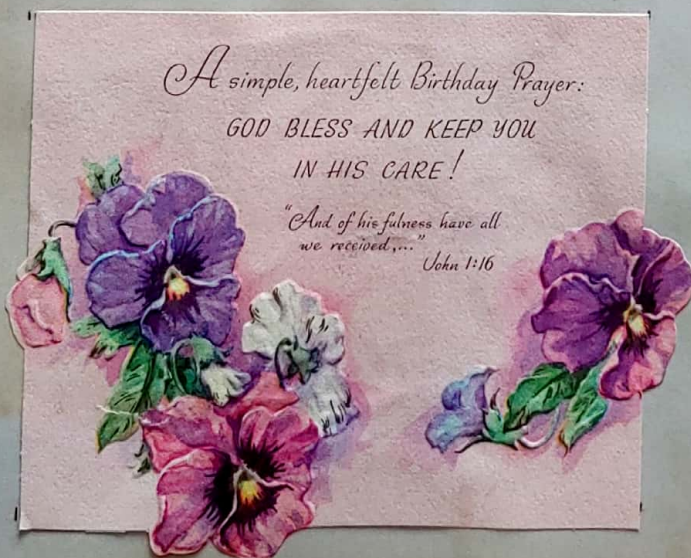 A simple, heartfelt Birthday Prayer:
GOD BLESS AND KEEP YOU
IN HIS CARE!
"And of his fulness have all
we received,..."
John 1:16